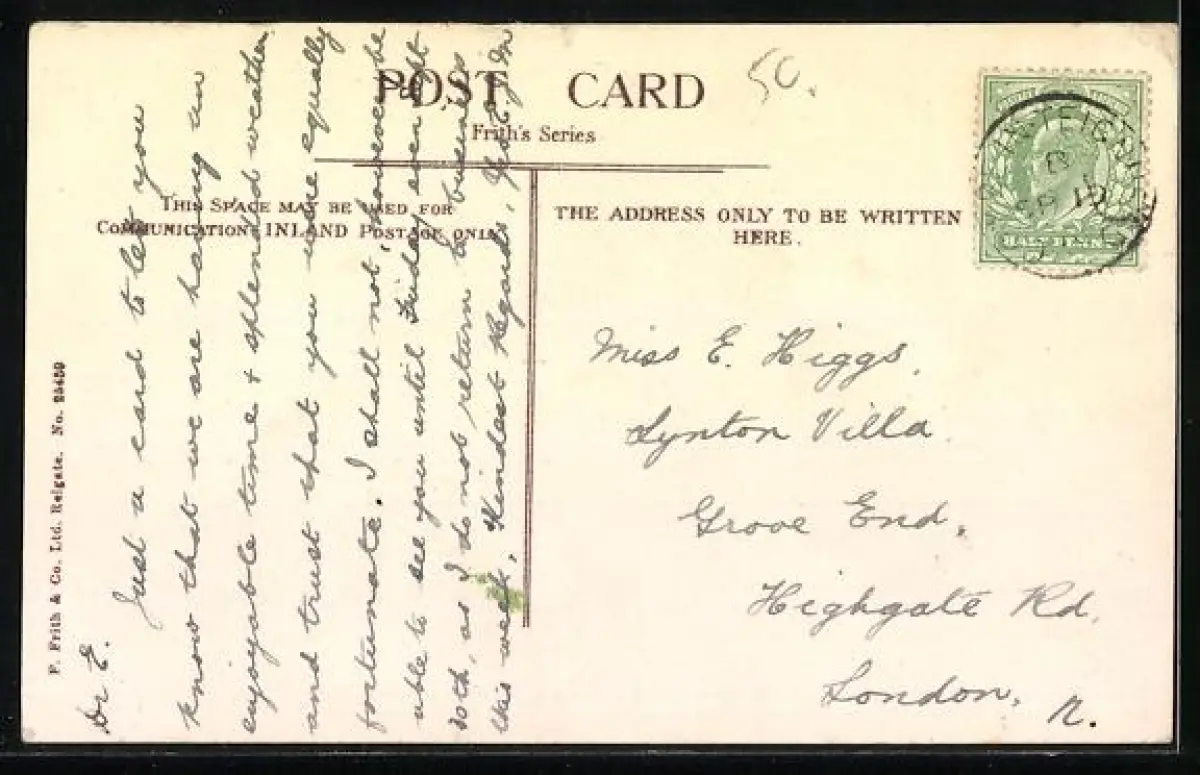 POST CARD
50.
Frith's Series
THIS SPACE MAY BE USED FOR
COMMUNICATION INLAND POSTAGE ONLY.
THE ADDRESS ONLY TO BE WRITTEN
HERE.
HALFPENNY
F. Frith & Co. Ltd. Reigate. No.
Dr E.
Just a card to let you
know that we are having an
enjoyable time + splendid weather
and trust that you were equally
fortunate. I shall not, however be
able to see you until Friday even
30th, as I do not return to business
this week. Kindest Regards,
Miss E. Higgs.
Lynton Villa.
Grove End,
Highgate Rd.
London. N.